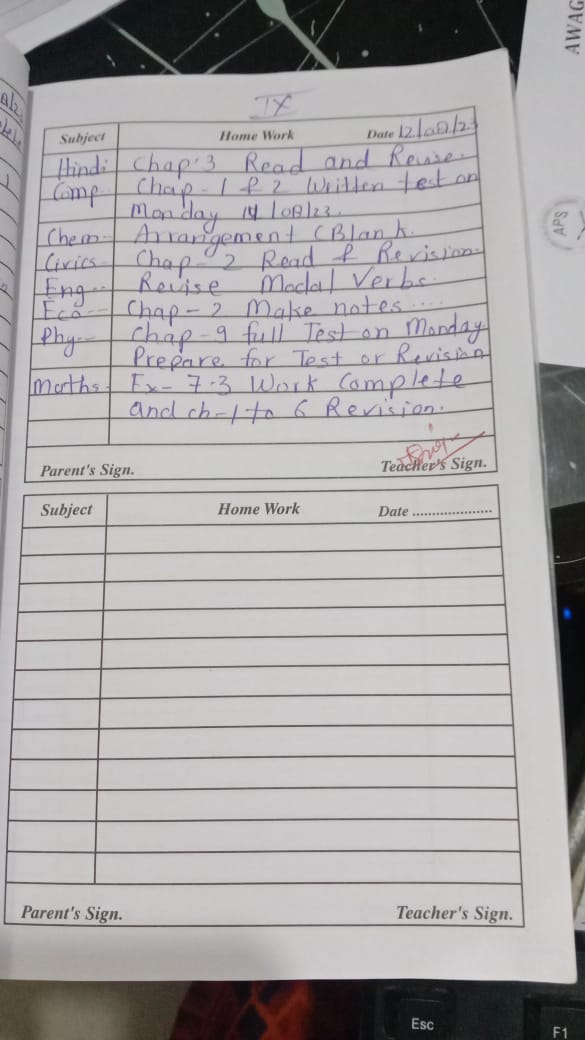 IX
Subject Home Work Date 12/08/23
Hindi Chap 3 Read and Revise.
Comp Chap - 1 & 2 Written test on
Monday 14/08/23.
Chem Arrangement (Blank.
Civics Chap - 2 Read & Revision.
Eng Revise Modal Verbs.
Eco Chap - 2 Make notes ....
Phy Chap - 9 full Test on Monday.
Prepare for Test or Revision
Maths Ex - 7.3 Work Complete
and ch - 1 to 6 Revision.
Parent's Sign. Teacher's Sign.
Subject Home Work Date ....................
Parent's Sign. Teacher's Sign.
AWAG
APS
Esc
F1